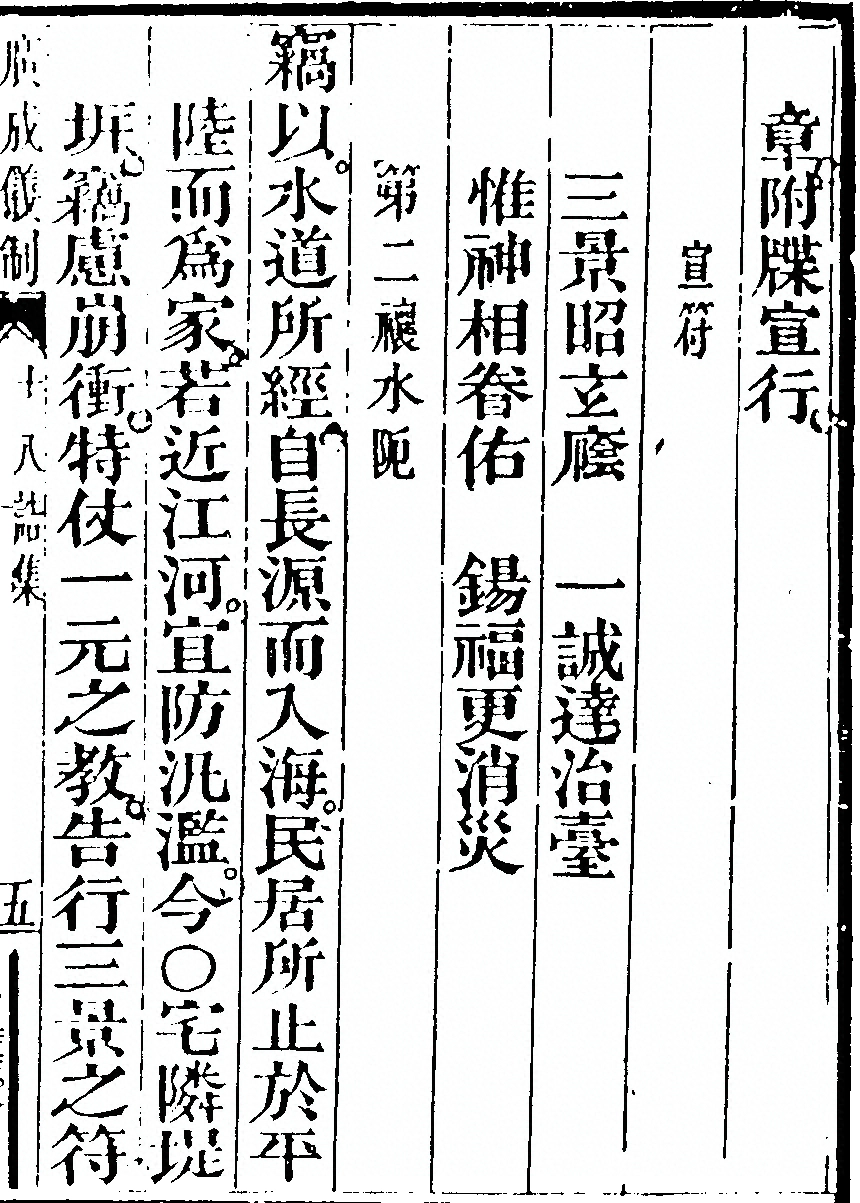 章附牒宣行。
宣符
三景昭玄廕　一誠達治臺
惟神相眷佑　錫福更消災
第二禳水阨
竊以。水道所經自長源而入海。民居所止於平
陸而爲家。若近江河。宜防汎濫。今〇宅隣堤
坼。竊慮崩衝。特仗一元之教。告行三景之符
廣成儀制　十八誥集　五